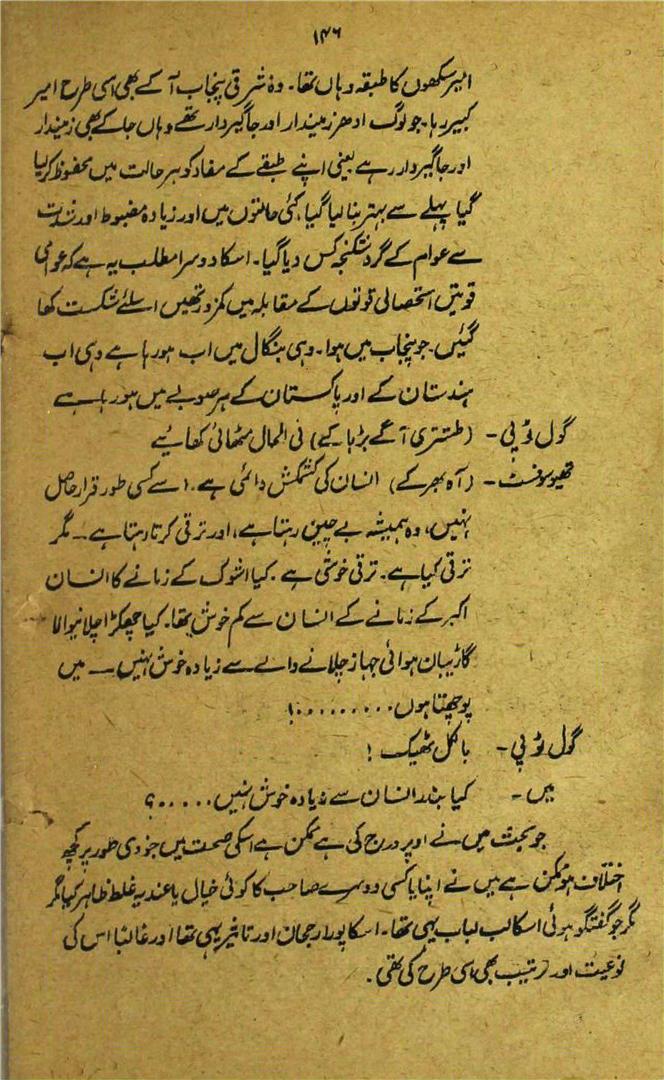 ۱۴۶
امیر سکھوں کا طبقہ وہاں تھا۔ وہ شرقی پنجاب آ کے بھی اسی طرح امیر
کبیر رہا۔ جو لوگ ادھر زمیندار اور جاگیردار تھے وہاں جا کے بھی زمیندار
اور جاگیردار رہے یعنی اپنے طبقے کے مفاد کو ہر حالت میں محفوظ کر لیا
گیا پہلے سے بہتر بنا لیا گیا، کئی حالتوں میں اور زیادہ مضبوط اور شدت
سے عوام کے گرد شکنجہ کس دیا گیا۔ اسکا دوسرا مطلب یہ ہے کہ عوامی
قوتیں استحصالی قوتوں کے مقابلہ میں کمزور تھیں اسلئے شکست کھا
گئیں۔ جو پنجاب میں ہوا۔ وہی بنگال میں اب ہو رہا ہے وہی اب
ہندستان کے اور پاکستان کے ہر صوبے میں ہو رہا ہے
گول ٹوپی - (طشتری آگے بڑہا کے) فی الحال مٹھائی کھائیے
تھیوسوفسٹ - (آہ بھر کے) انسان کی کشمکش دائمی ہے۔ اسے کسی طور قرار حاصل
نہیں، وہ ہمیشہ بے چین رہتا ہے، اور ترقی کرتا رہتا ہے ــ مگر
ترقی کیا ہے۔ ترقی خوشی ہے۔ کیا اشوک کے زمانے کا انسان
اکبر کے زمانے کے انسان سے کم خوش تھا۔ کیا چھکڑا چلانیوالا
گاڑیبان ہوائی جہاز چلانے والے سے زیادہ خوش نہیں ــ میں
پوچھتا ہوں.........!
گول ٹوپی - بالکل ٹھیک !
میں - کیا بندر انسان سے زیادہ خوش نہیں.....؟
جو بحث میں نے اوپر درج کی ہے ممکن ہے اسکی صحت میں جزوی طور پر کچھ
اختلاف ہو ممکن ہے میں نے اپنا یا کسی دوسرے صاحب کا کوئی خیال یا عندیہ غلط ظاہر کیا مگر
مگر جو گفتگو ہوئی اسکا لب لباب یہی تھا۔ اسکا پورا رجحان اور تاثیر یہی تھا اور غالبًا اس کی
نوعیت اور ترتیب بھی اسی طرح کی تھی۔